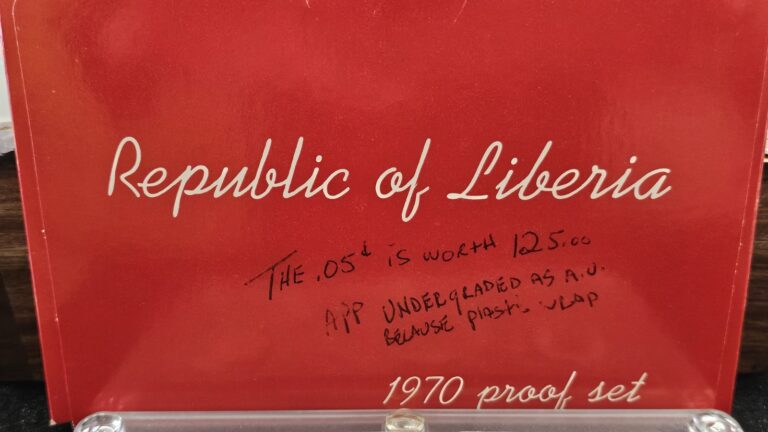 Republic of Liberia
THE .05¢ is WORTH 125.00
APP UNDERGRADED AS A.U.
BECAUSE plastic WRAP
1970 proof set